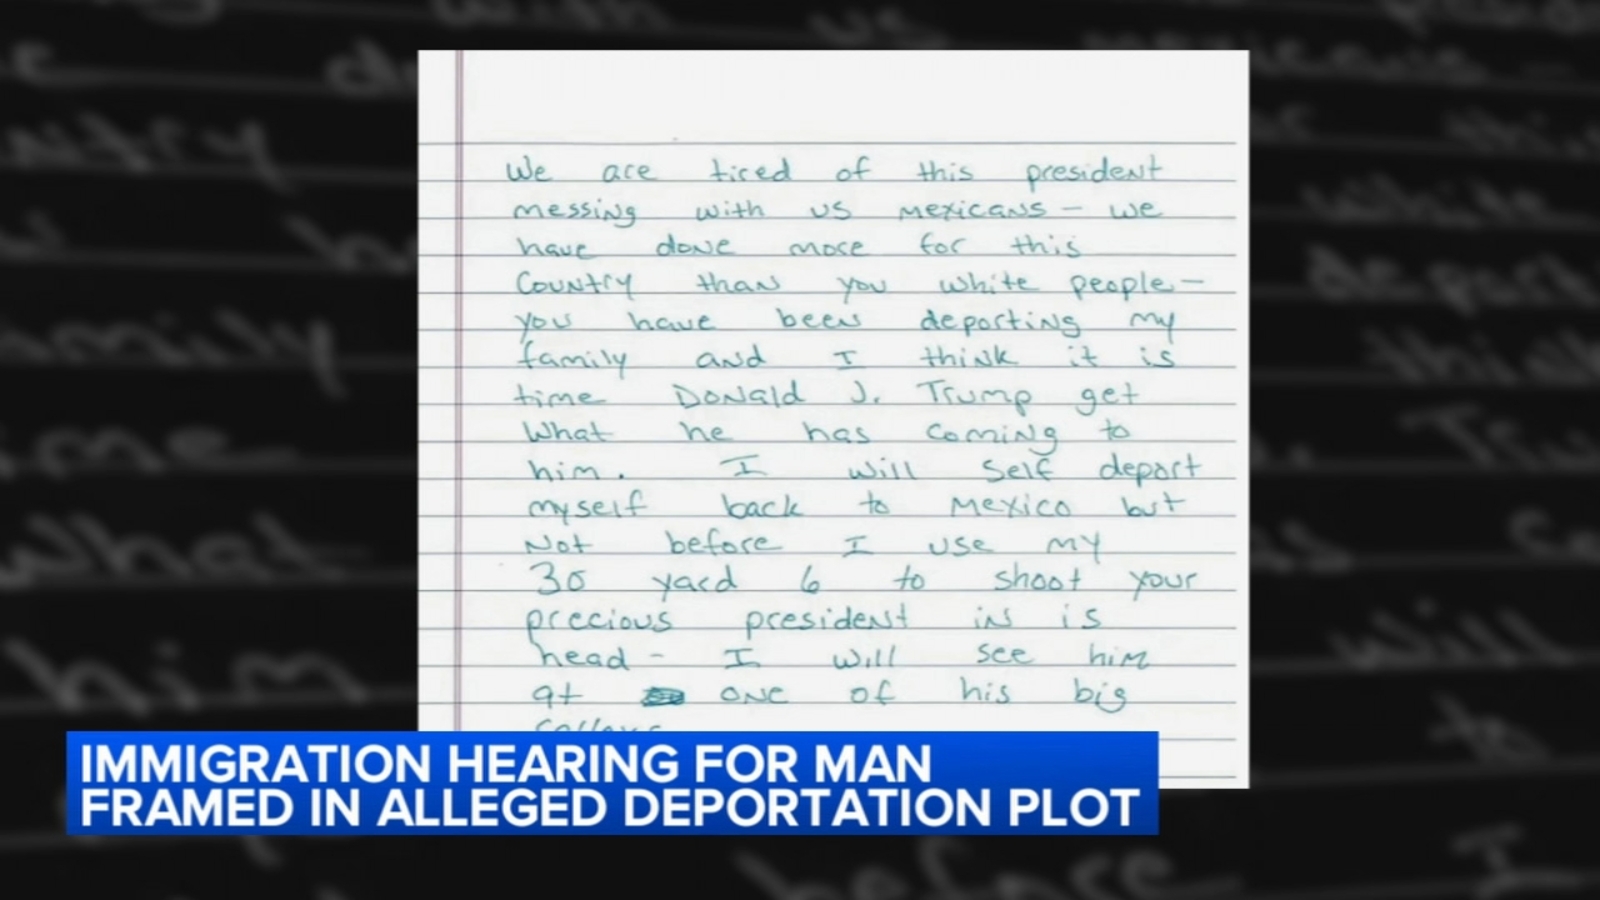 We are tired of this president
messing with us mexicans - we
have done more for this
Country than you white people -
you have been deporting my
family and I think it is
time Donald J. Trump get
what he has coming to
him. I will self deport
myself back to mexico but
not before I use my
30 yard 6 to shoot your
precious president in is
head - I will see him
at one of his big
IMMIGRATION HEARING FOR MAN
FRAMED IN ALLEGED DEPORTATION PLOT